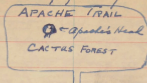 APACHE TRAIL
Apache's Head
CACTUS FOREST